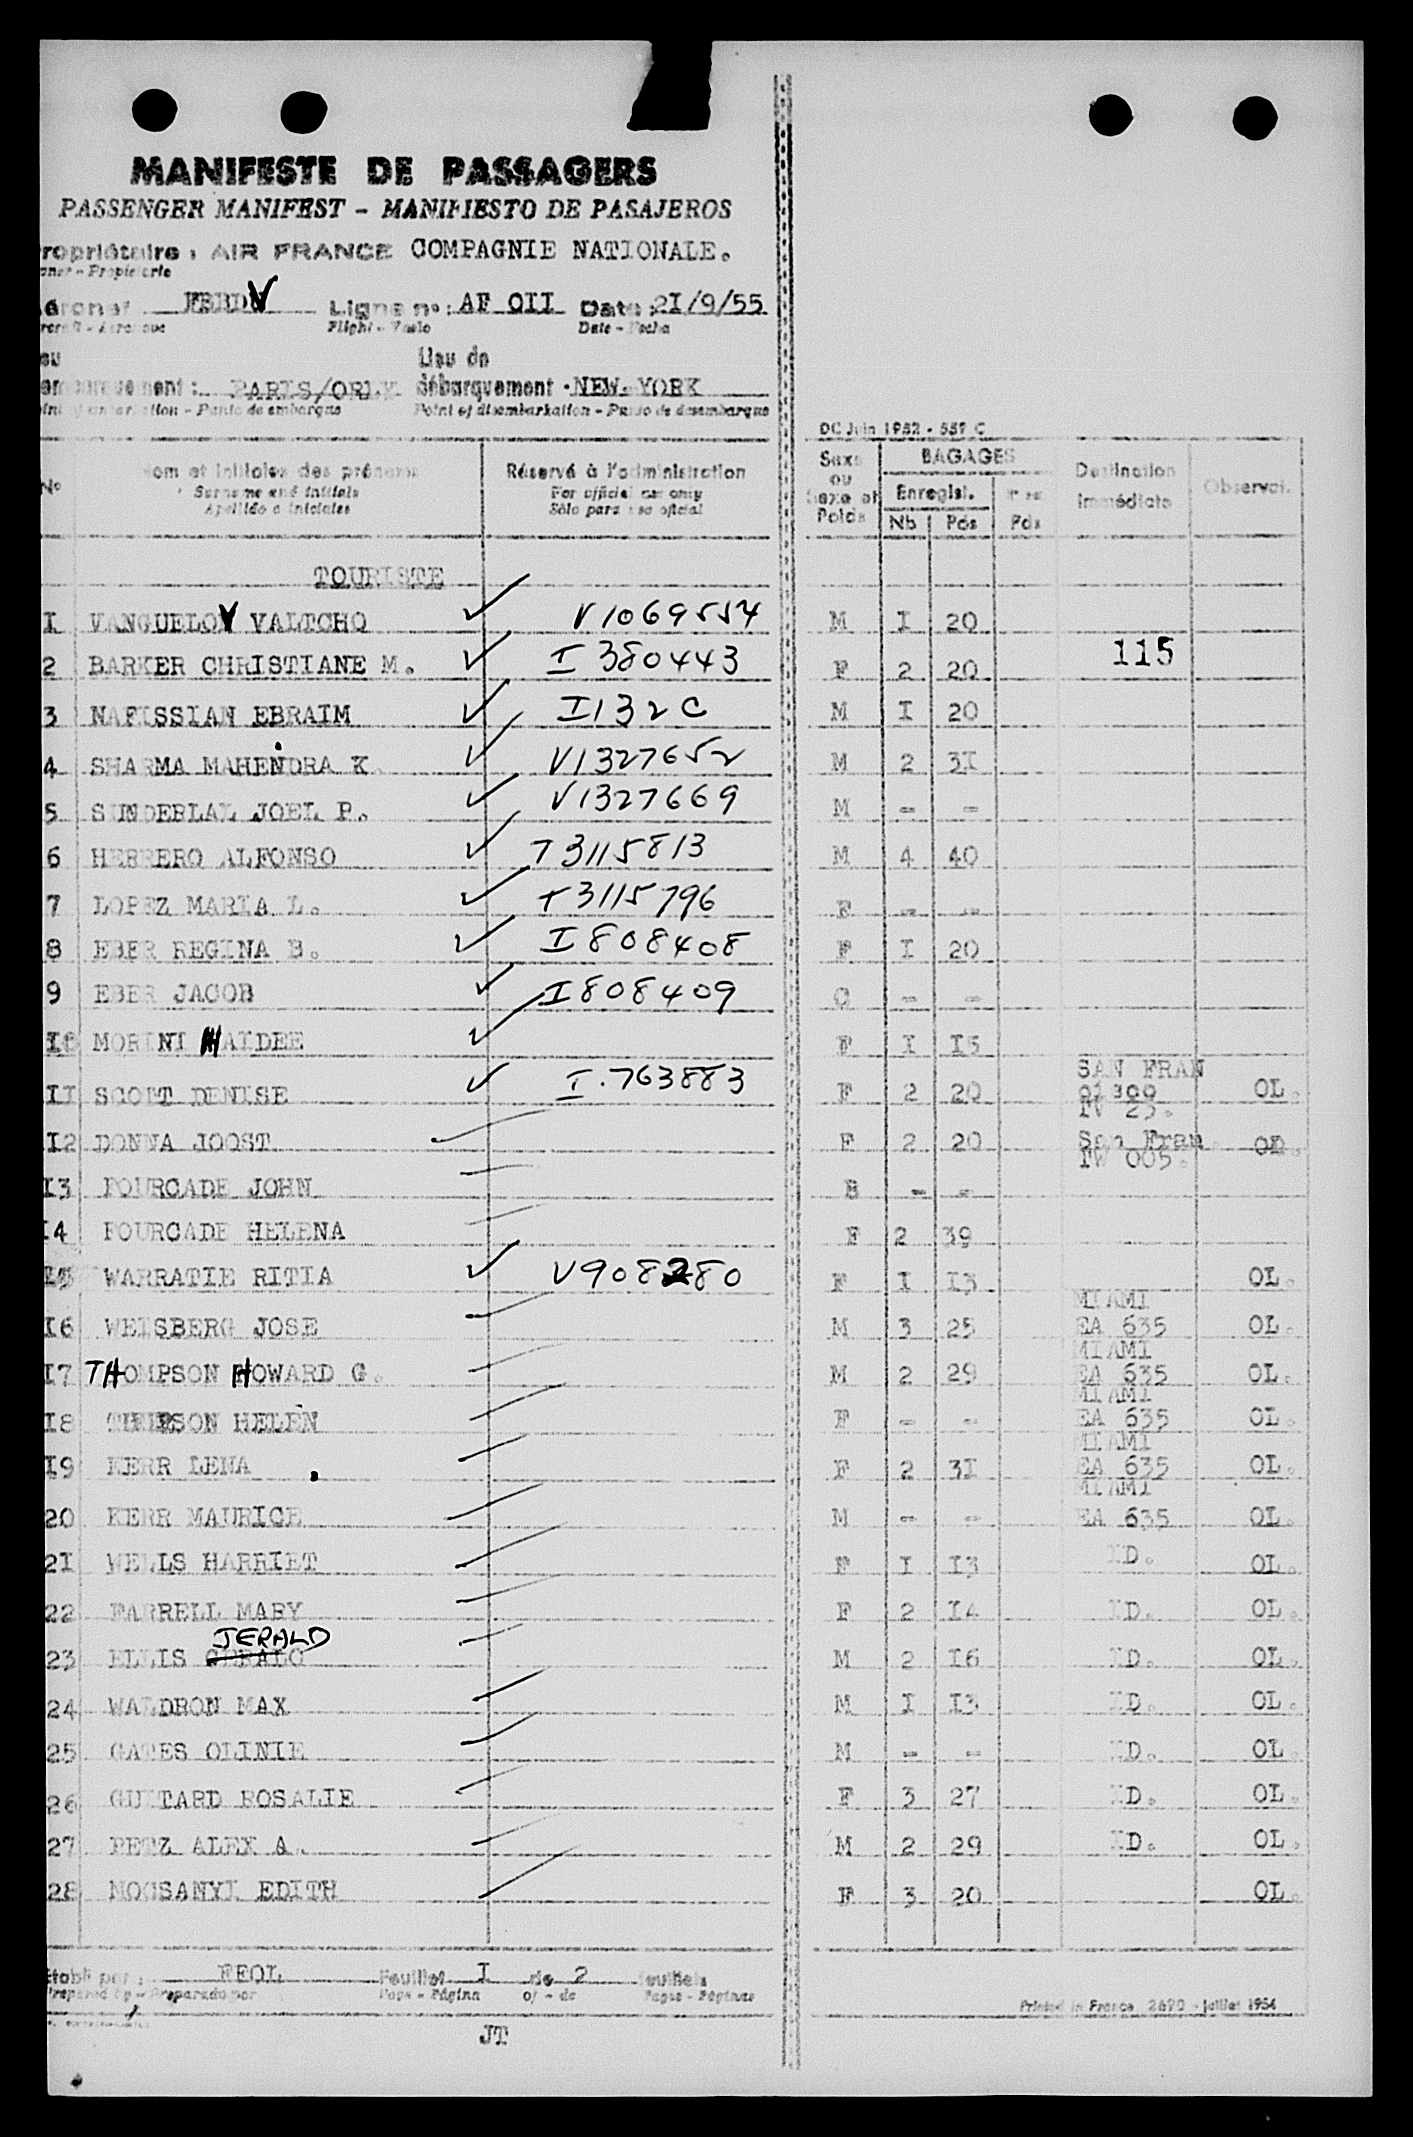 MANIFESTE DE PASSAGERS
PASSENGER MANIFEST - MANIFIESTO DE PASAJEROS
ropriétaire : AIR FRANCE COMPAGNIE NATIONALE.
Ligne n° : AF OII Date : 2I/9/55
Flight - Date - Fecha
Lieu de
PARIS/ORLY débarquement · NEW-YORK
Punto de embarque Point of disembarkation - Punto de desembarque
DC Juin 1952 - 559 C
N° om et initiales des prénoms Réservé à l'administration Sexe ou Sexe et Poids BAGAGES Destination immédiate Observat.
Surname and initials For official use only Enregist.
Apellido e iniciales Sólo para uso oficial Nb Pds Pds
TOURISTE
I VANGUELOV VALTCHO V1069554 M I 20
2 BARKER CHRISTIANE M. I 380443 F 2 20 115
3 NAFISSIAN EBRAIM I132C M I 20
4 SHARMA MAHENDRA K. V1327652 M 2 3I
5 SUNDERLAL JOEL P. V1327669 M - -
6 HERRERO ALFONSO T3115813 M 4 40
7 LOPEZ MARIA L. T3115796 F - -
8 EBER REGINA B. I808408 F I 20
9 EBER JACOB I808409 C - -
I0 MORINI HAIDEE F I I5
II SCOTT DENISE I.763883 F 2 20 SAN FRAN OL.
I2 DONNA JOOST F 2 20 San Fran TW 005.
I3 FOURCADE JOHN B - -
I4 FOURCADE HELENA F 2 39
I5 WARRATIE RITIA V908280 F I I3 OL.
I6 WEISBERG JOSE M 3 25 MIAMI EA 635 OL.
I7 THOMPSON HOWARD G. M 2 29 MIAMI EA 635 OL.
I8 HELEN F - - MIAMI EA 635 OL.
I9 KERR LENA F 2 3I MIAMI EA 635 OL.
20 KERR MAURICE M - - MIAMI EA 635 OL.
2I WELLS HARRIET F I I3 OL.
22 FARRELL MARY F 2 I4 OL.
JERALD
23 ELLIS M 2 I6 OL.
24 WALDRON MAX M I I3 OL.
25 GATES OLINIE M - - OL.
26 GUITARD ROSALIE F 3 27 OL.
27 PETZ ALEX A. M 2 29 OL.
28 MOCSANYI EDITH F 3 20 OL.
Etabli par : FEOL Feuillet I de 2 feuillets
Prepared by - Preparado por Page - Página of - de Pages - Páginas
Printed in France 2690 - Juillet 1954
JT